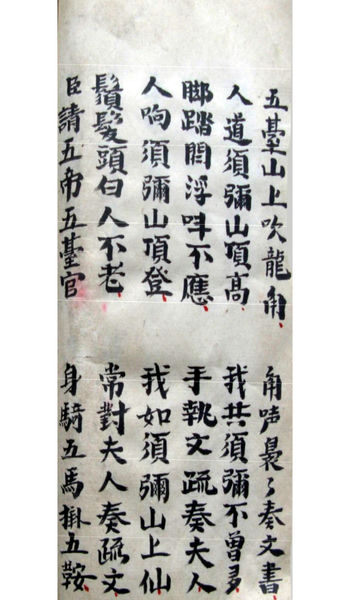 五臺山上吹龍角 角声裊々奏文書
人道須彌山頂高 我共須彌不曾多
脚踏閆浮呌不應 手執文疏奏夫人
人响須彌山頂登 我如須彌山上仙
鬚髮頭白人不老 常對夫人奏疏文
臣請五帝五臺官 身騎五馬掛五鞍